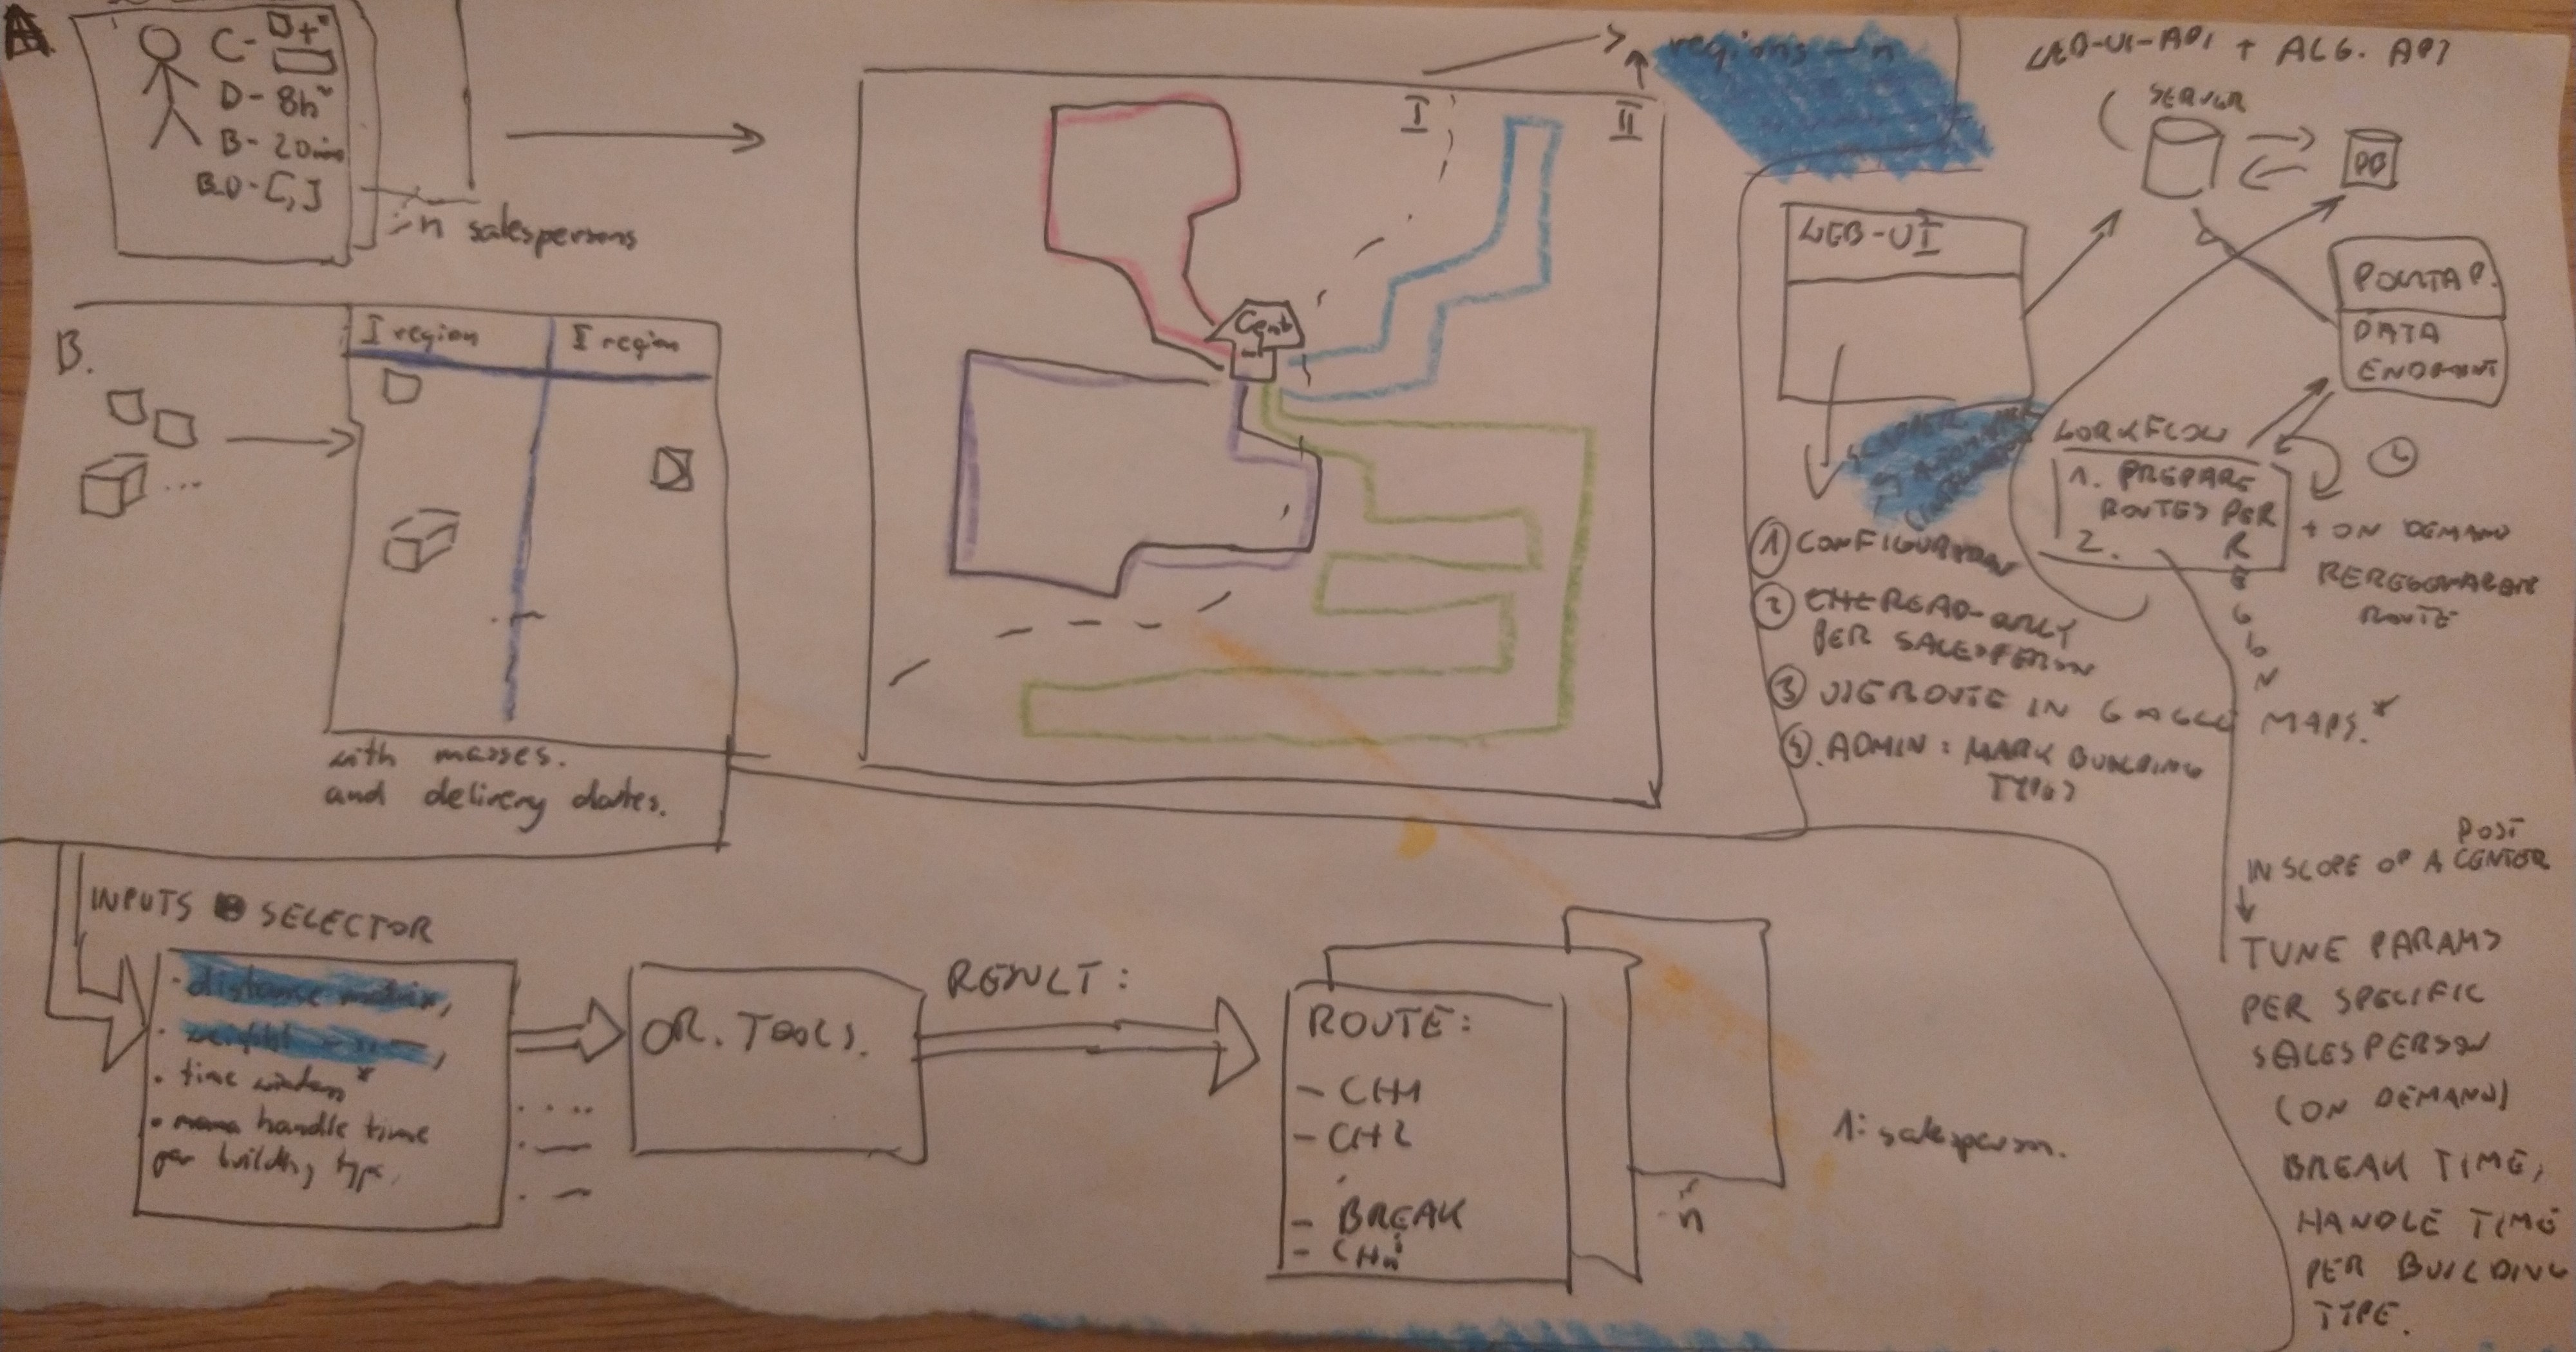 A.
C-
D- 8h
B- 20min
B.D- [,]
n salespersons
B.
I region
II region
with masses.
and delivery dates.
regions - n
I
II
Cent
WEB-UI-API + ALG. API
SERVER
DB
WEB-UI
DATA
WORKFLOW
1. PREPARE
ROUTES PER
REGION
2.
+ ON DEMAND
ROUTE
① CONFIGURATION
② READ-ONLY
PER SALESPERSON
③ ROUTE IN GOOGLE MAPS.*
④. ADMIN: MARK BUILDING
TYPES
POST
IN SCOPE OF A CENTER
TUNE PARAMS
PER SPECIFIC
SALESPERSON
(ON DEMAND)
BREAK TIME,
HANDLE TIME
PER BUILDING
TYPE.
INPUTS SELECTOR
· distance matrix,
· time windows*
· handle time
per building type,
OR. TOOLS.
RESULT:
ROUTE:
- CH1
- CH2
- BREAK
- CHn
n
1: salesperson.